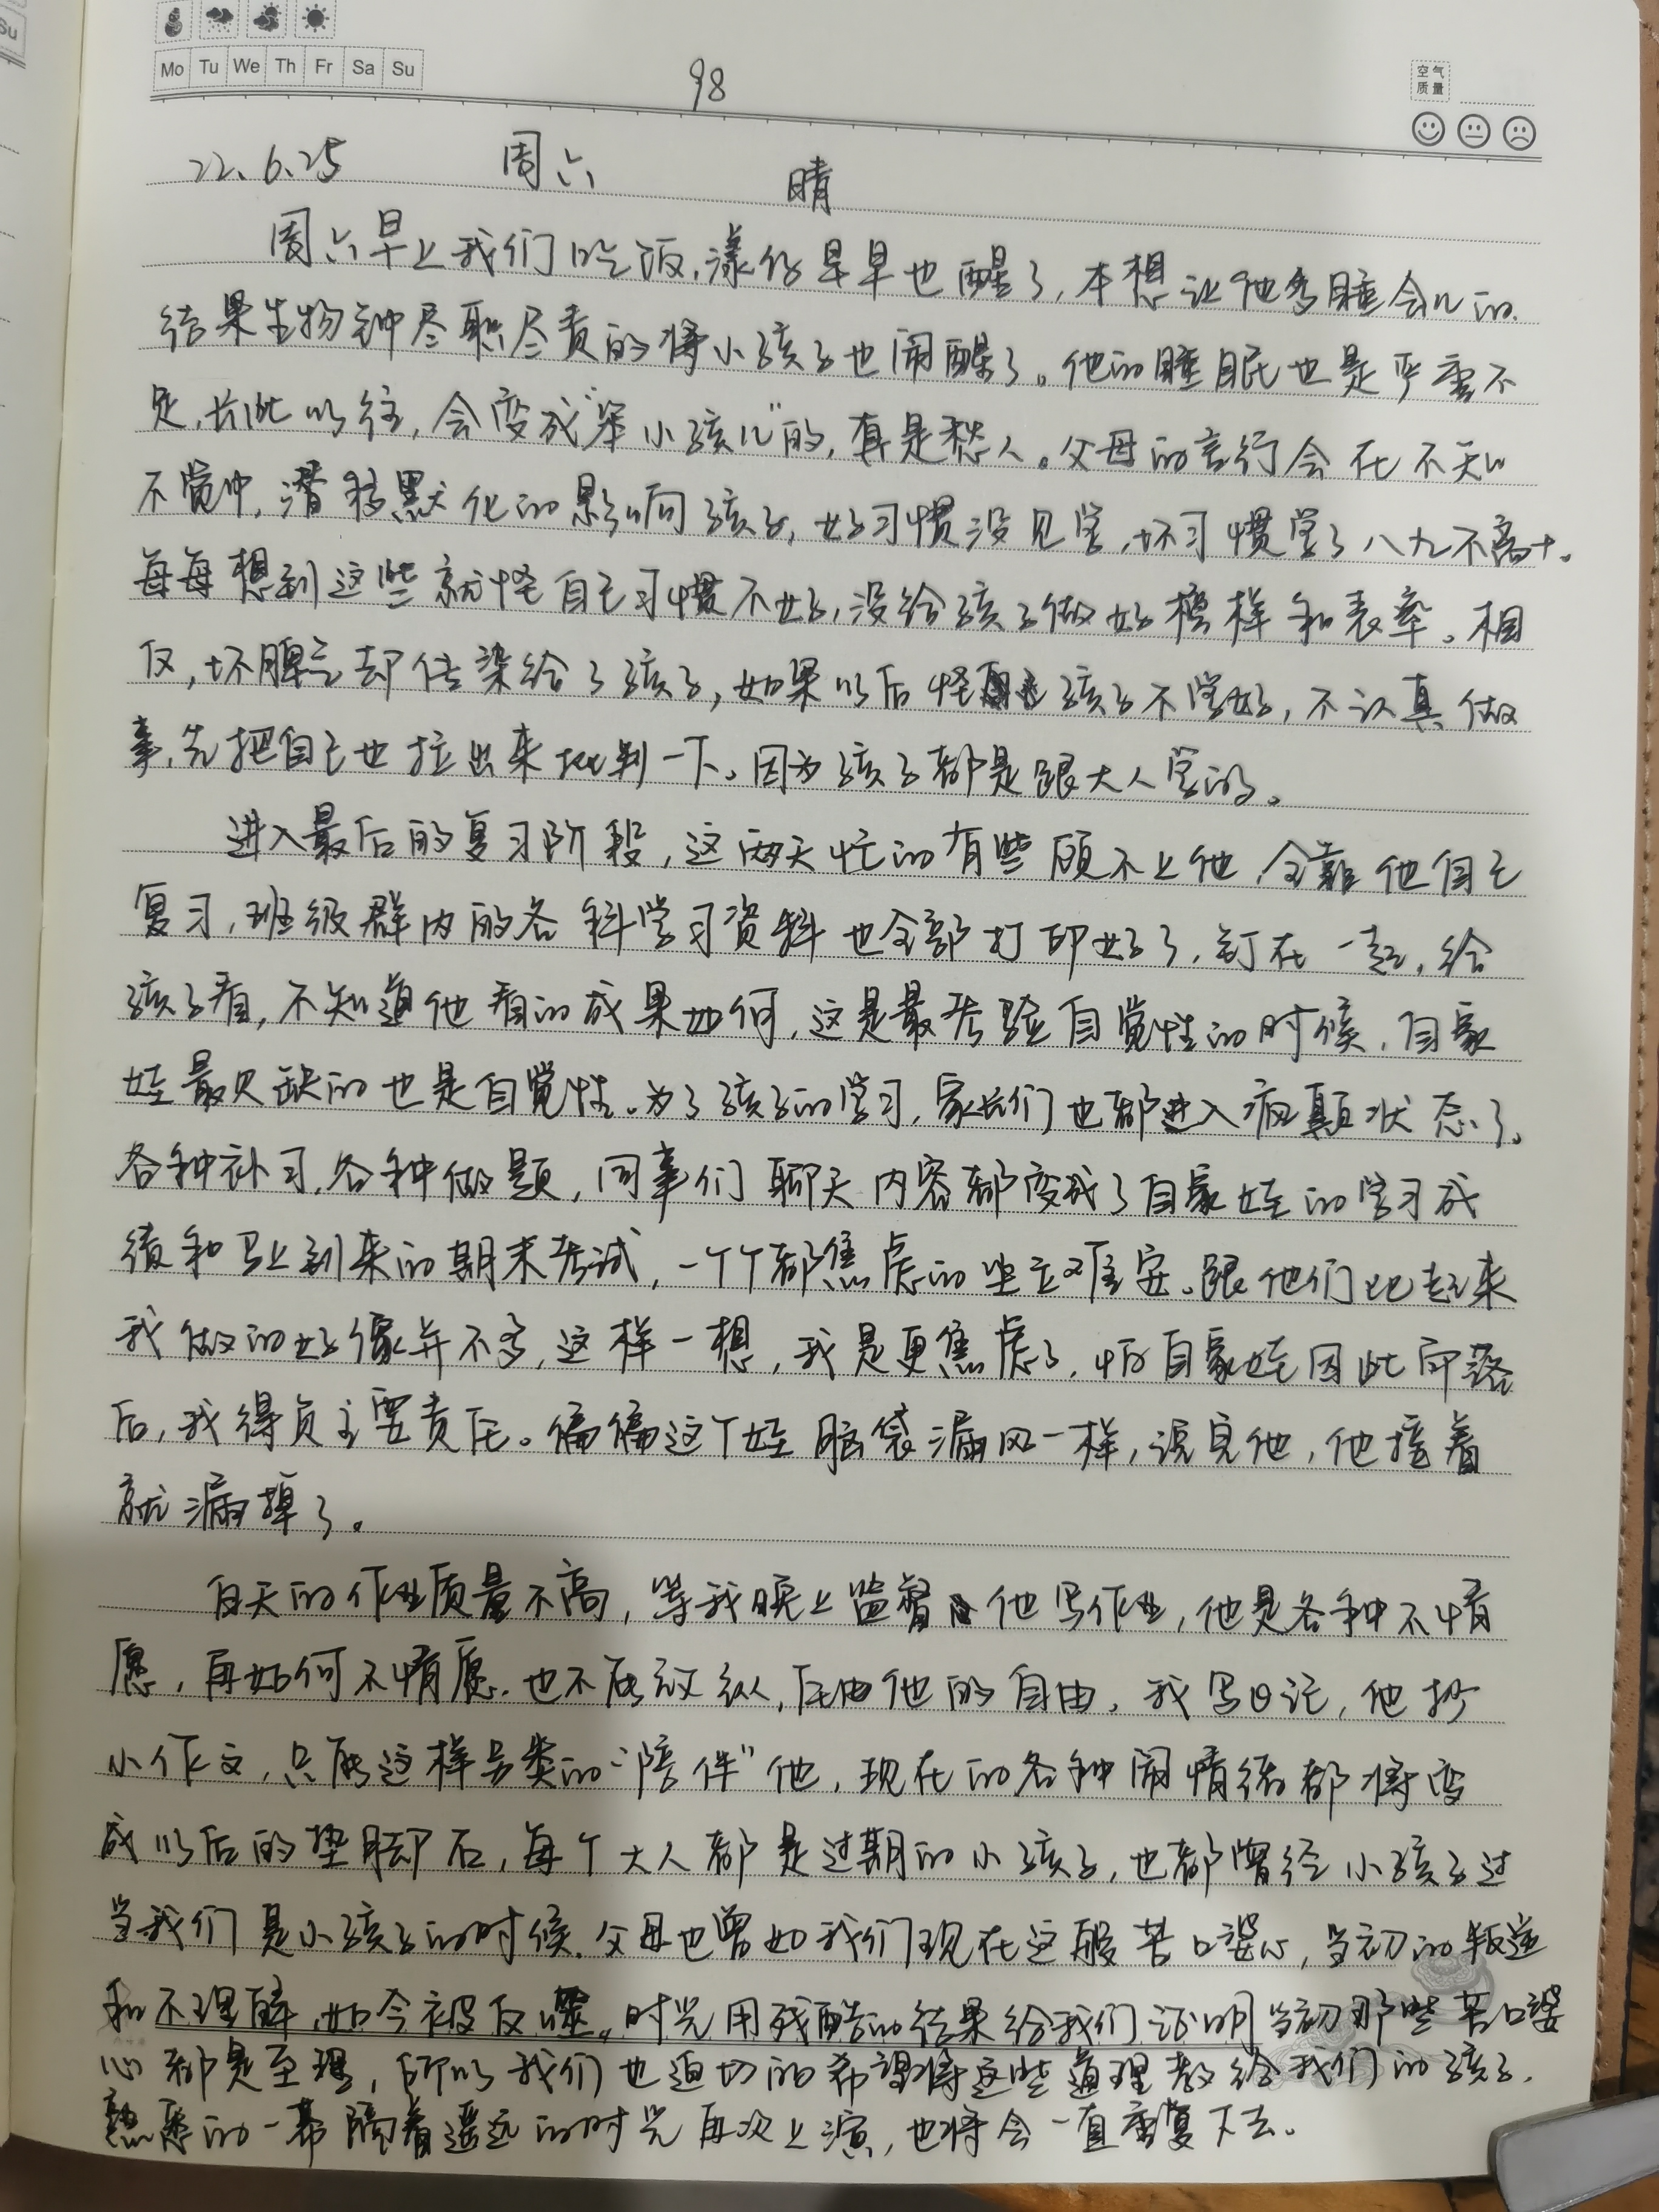 Su
Mo Tu We Th Fr Sa Su
98
空气
质量
22.6.25 周六 晴
周六早上我们吃饭,漾仔早早也醒了,本想让他多睡会儿的.
结果生物钟尽职尽责的将小孩子也闹醒了。他的睡眠也是严重不
足,长此以往,会变成“笨小孩儿”的,真是愁人。父母的言行会在不知
不觉中,潜移默化的影响孩子,好习惯没见学,坏习惯学了八九不离十。
每每想到这些就怪自己习惯不好,没给孩子做好榜样和表率。相
反,坏脾气却传染给了孩子,如果以后怪孩子不学好,不认真做
事,先把自己也拉出来批判一下。因为孩子都是跟大人学的。
进入最后的复习阶段,这两天忙的有些顾不上他,全靠他自己
复习,班级群内的各科学习资料也全部打印好了,钉在一起,给
孩子看,不知道他看的成果如何,这是最考验自觉性的时候,自家
娃最欠缺的也是自觉性。为了孩子的学习,家长们也都进入疯颠状态了。
各种补习,各种做题,同事们聊天内容都变成了自家娃的学习成
绩和马上到来的期末考试,一个个都焦虑的坐立难安。跟他们比起来
我做的好像并不多,这样一想,我是更焦虑了,怕自家娃因此而落
后,我得负主要责任。偏偏这个娃脑袋漏风一样,说完他,他接着
就漏掉了。
白天的作业质量不高,等我晚上监督他写作业,他是各种不情
愿,再如何不情愿.也不能放纵,任由他的自由,我写日记,他抄
小作文,只能这样另类的“陪伴”他,现在的各种闹情绪都将变
成以后的垫脚石,每个大人都是过期的小孩子,也都曾经小孩子过
当我们是小孩子的时候.父母也曾如我们现在这般苦口婆心,当初的叛逆
和不理解,如今被反噬。时光用残酷的结果给我们证明当初那些苦口婆
心都是至理,所以我们也迫切的希望将这些道理教给我们的孩子,
熟悉的一幕隔着遥远的时光再次上演,也将会一直重复下去。